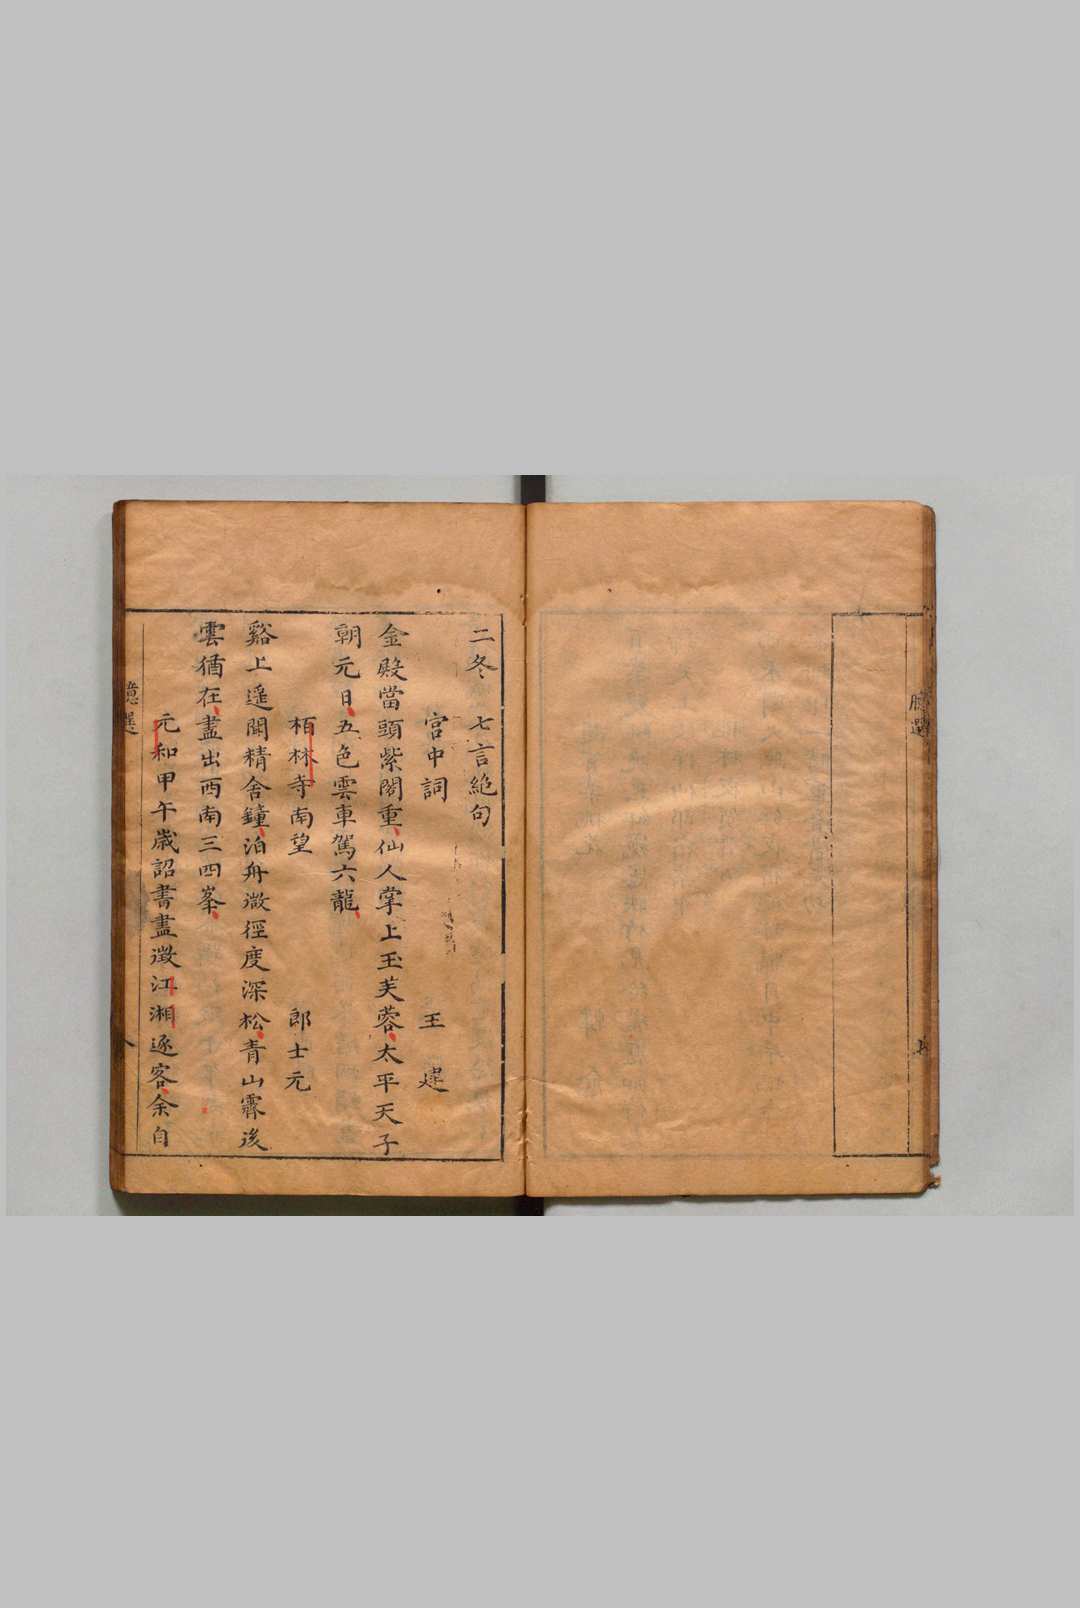 二冬 七言絶句
宮中詞 王建
金殿當頭紫閣重仙人掌上玉芙蓉太平天子
朝元日五色雲車駕六龍
栢林寺南望 郎士元
谿上遥聞精舍鐘泊舟微徑度深松青山霽後
雲猶在畫出西南三四峯
元和甲午歲詔書盡徵江湘逐客余自